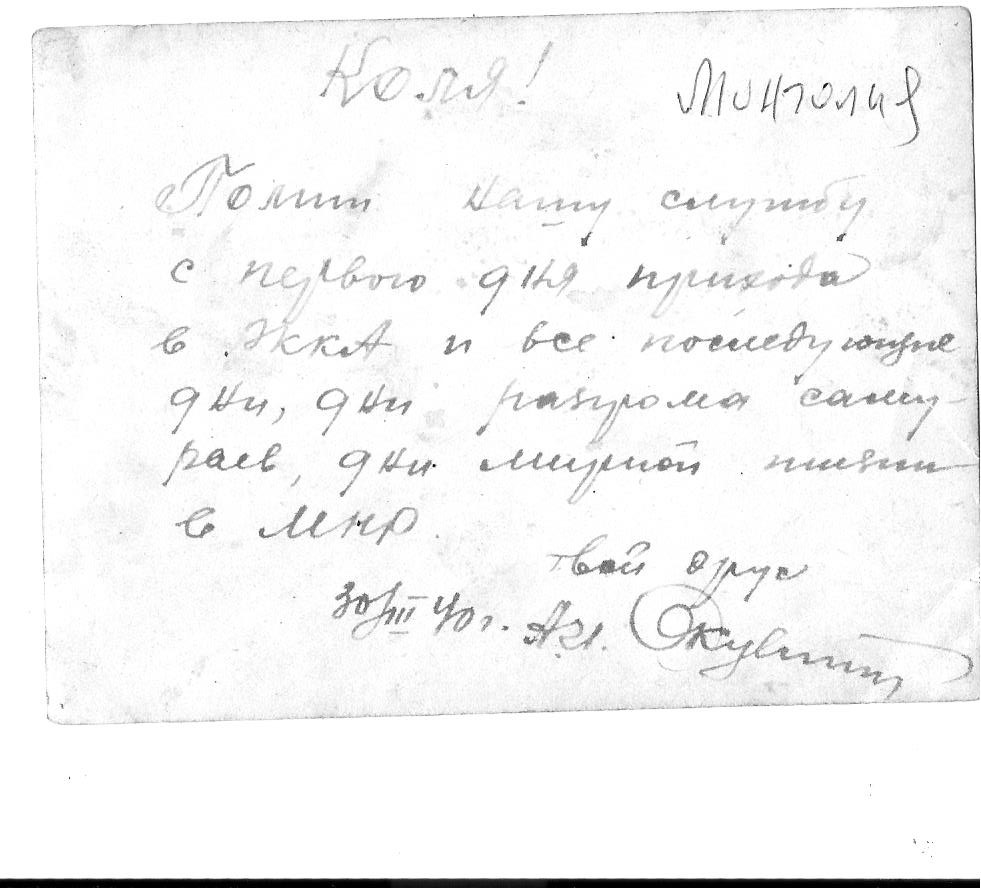 Коля!
Монголия
Помни нашу службу
с первого дня прихода
в РККА и все последующие
дни, дни разгрома саму-
раев, дни мирной жизни
в МНР.
твой друг
30/III 40 г.